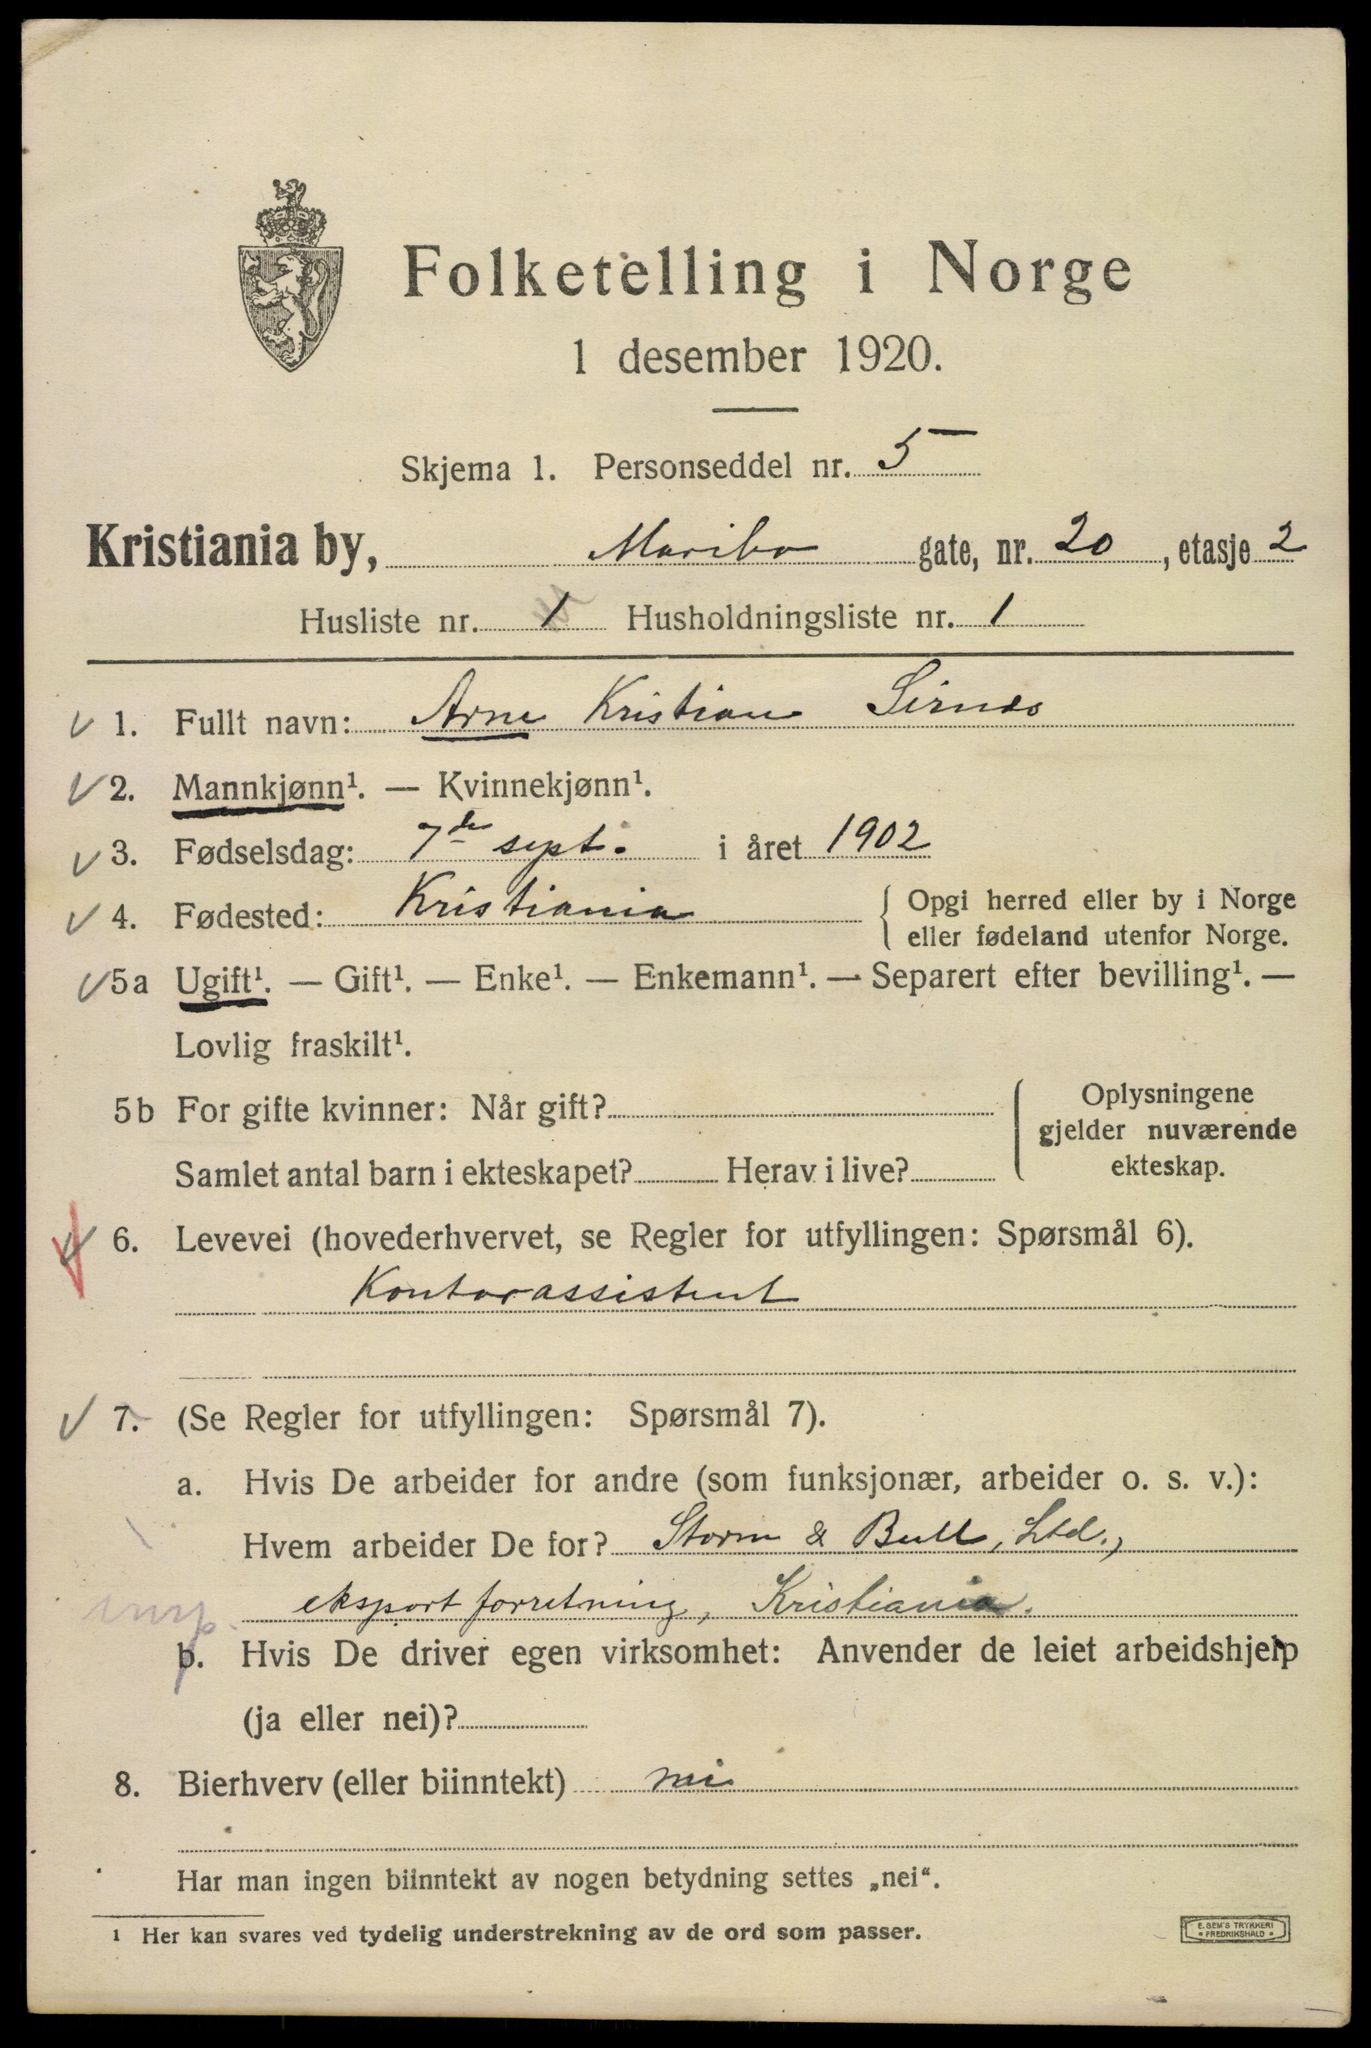 Folketelling i Norge
1 desember 1920.
Skjema 1. Personseddel nr. 5
Kristiania by, Maribo gate, nr. 20, etasje 2
Husliste nr. 1 Husholdningsliste nr. 1
1. Fullt navn: Arne Kristian Sirnes
2. Mannkjønn¹. — Kvinnekjønn¹.
3. Fødselsdag: 7de sept. i året 1902
4. Fødested: Kristiania { Opgi herred eller by i Norge
eller fødeland utenfor Norge.
5a Ugift¹. — Gift¹. — Enke¹. — Enkemann¹. — Separert efter bevilling¹. —
Lovlig fraskilt¹.
5b For gifte kvinner: Når gift?
Samlet antal barn i ekteskapet? Herav i live?
Oplysningene
gjelder nuværende
ekteskap.
6. Levevei (hovederhvervet, se Regler for utfyllingen: Spørsmål 6).
Kontorassistent
7. (Se Regler for utfyllingen: Spørsmål 7).
a. Hvis De arbeider for andre (som funksjonær, arbeider o. s. v.):
Hvem arbeider De for? Storm & Bull, Ltd.,
eksportforretning, Kristiania.
b. Hvis De driver egen virksomhet: Anvender de leiet arbeidshjelp
(ja eller nei)?
8. Bierhverv (eller biinntekt) nei
Har man ingen biinntekt av nogen betydning settes „nei“.
¹ Her kan svares ved tydelig understrekning av de ord som passer.
E. SEM'S TRYKKERI
FREDRIKSHALD